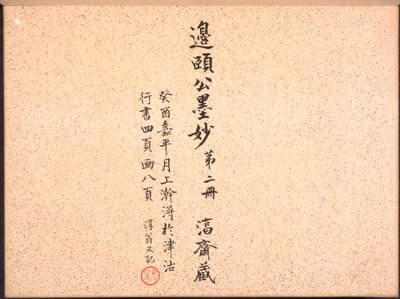 邊頤公墨妙 第二冊 滈齋藏
癸酉嘉平月上澣淂於津沽
行書四頁画八頁 淳翁又記